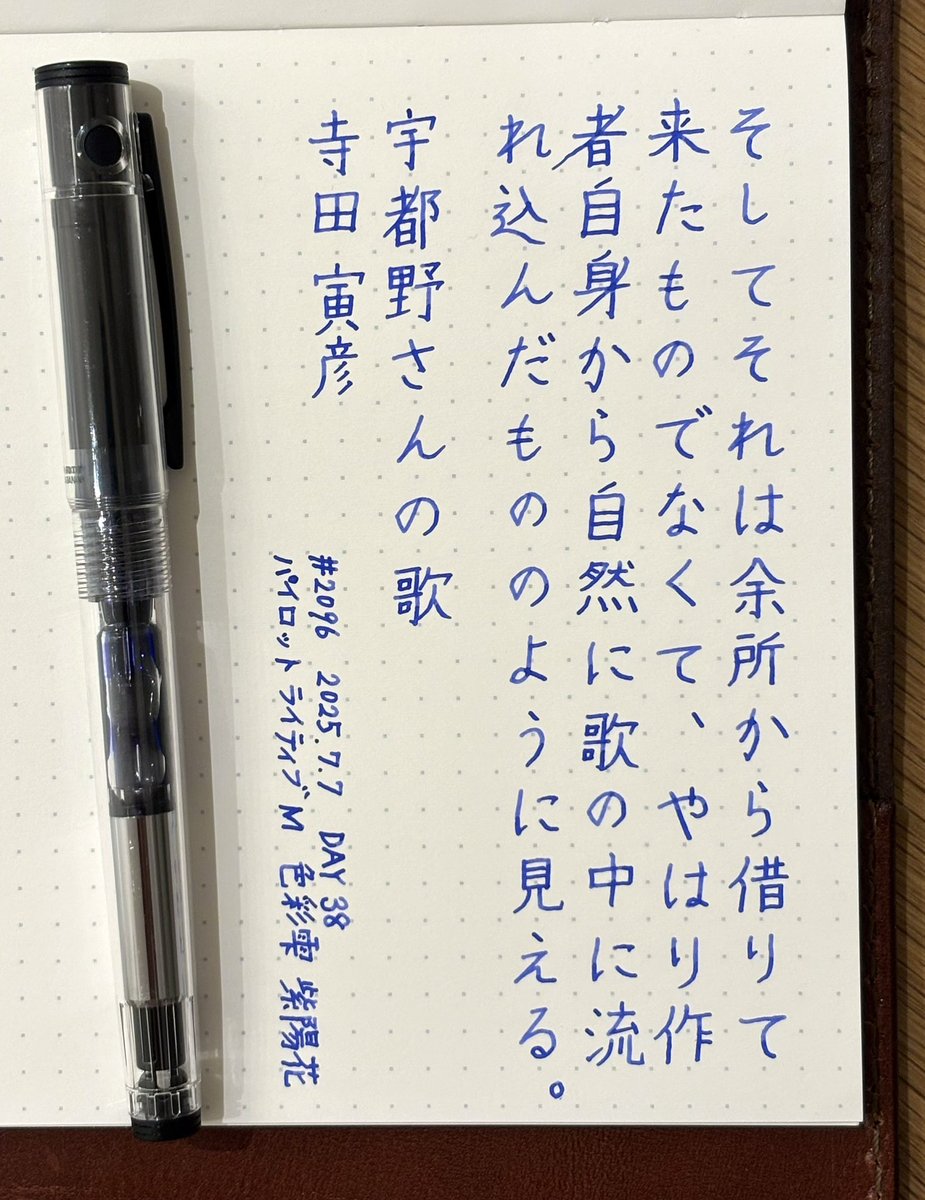 そしてそれは余所から借りて
来たものでなくて、やはり作
者自身から自然に歌の中に流
れ込んだもののように見える。
宇都野さんの歌
寺田寅彦
#2096 2025.7.7 DAY 38
パイロット ライティブM 色彩雫 紫陽花